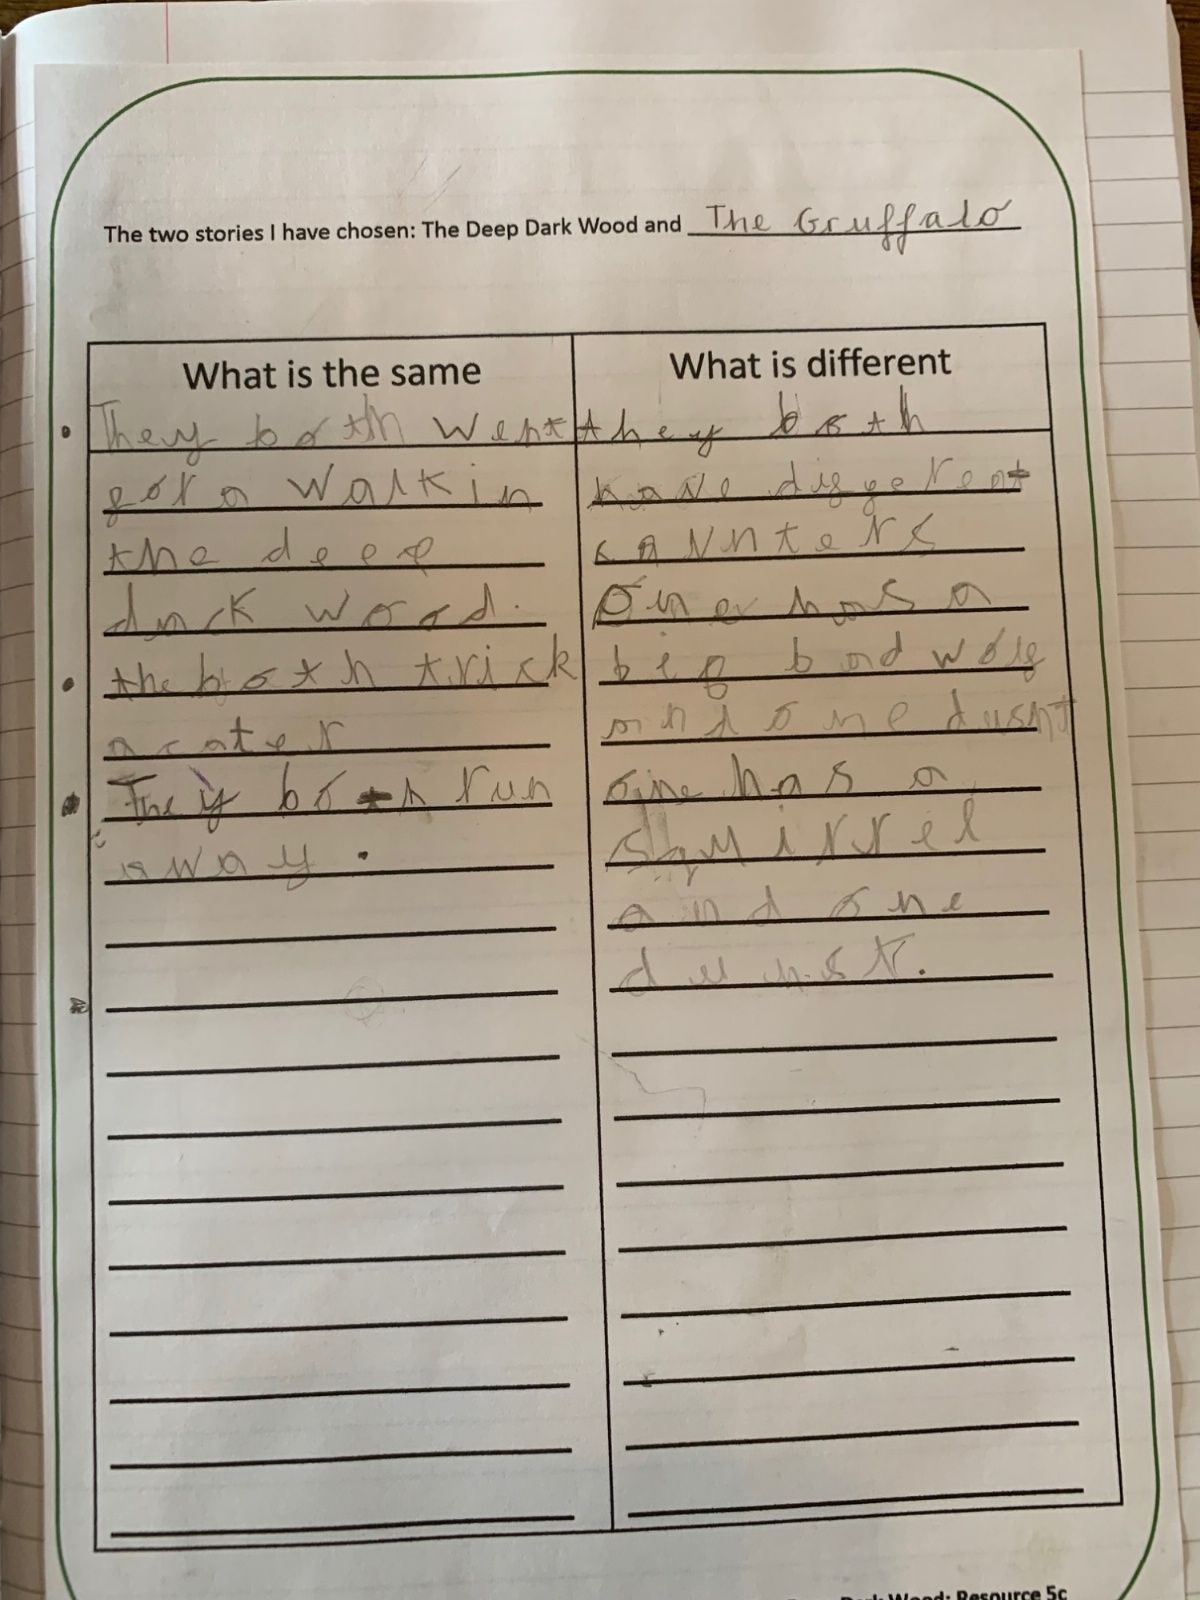 The two stories I have chosen: The Deep Dark Wood and The Gruffalo
What is the same
They both went
for a walk in
the deep
darck wood.
the both trick
a cater
They both run
away.
What is different
they both
have different
carnters
One has a
big bad wolf
and one dusnt
one has a
Squirrel
and one
dunst.
Dark Wood: Resource 5c